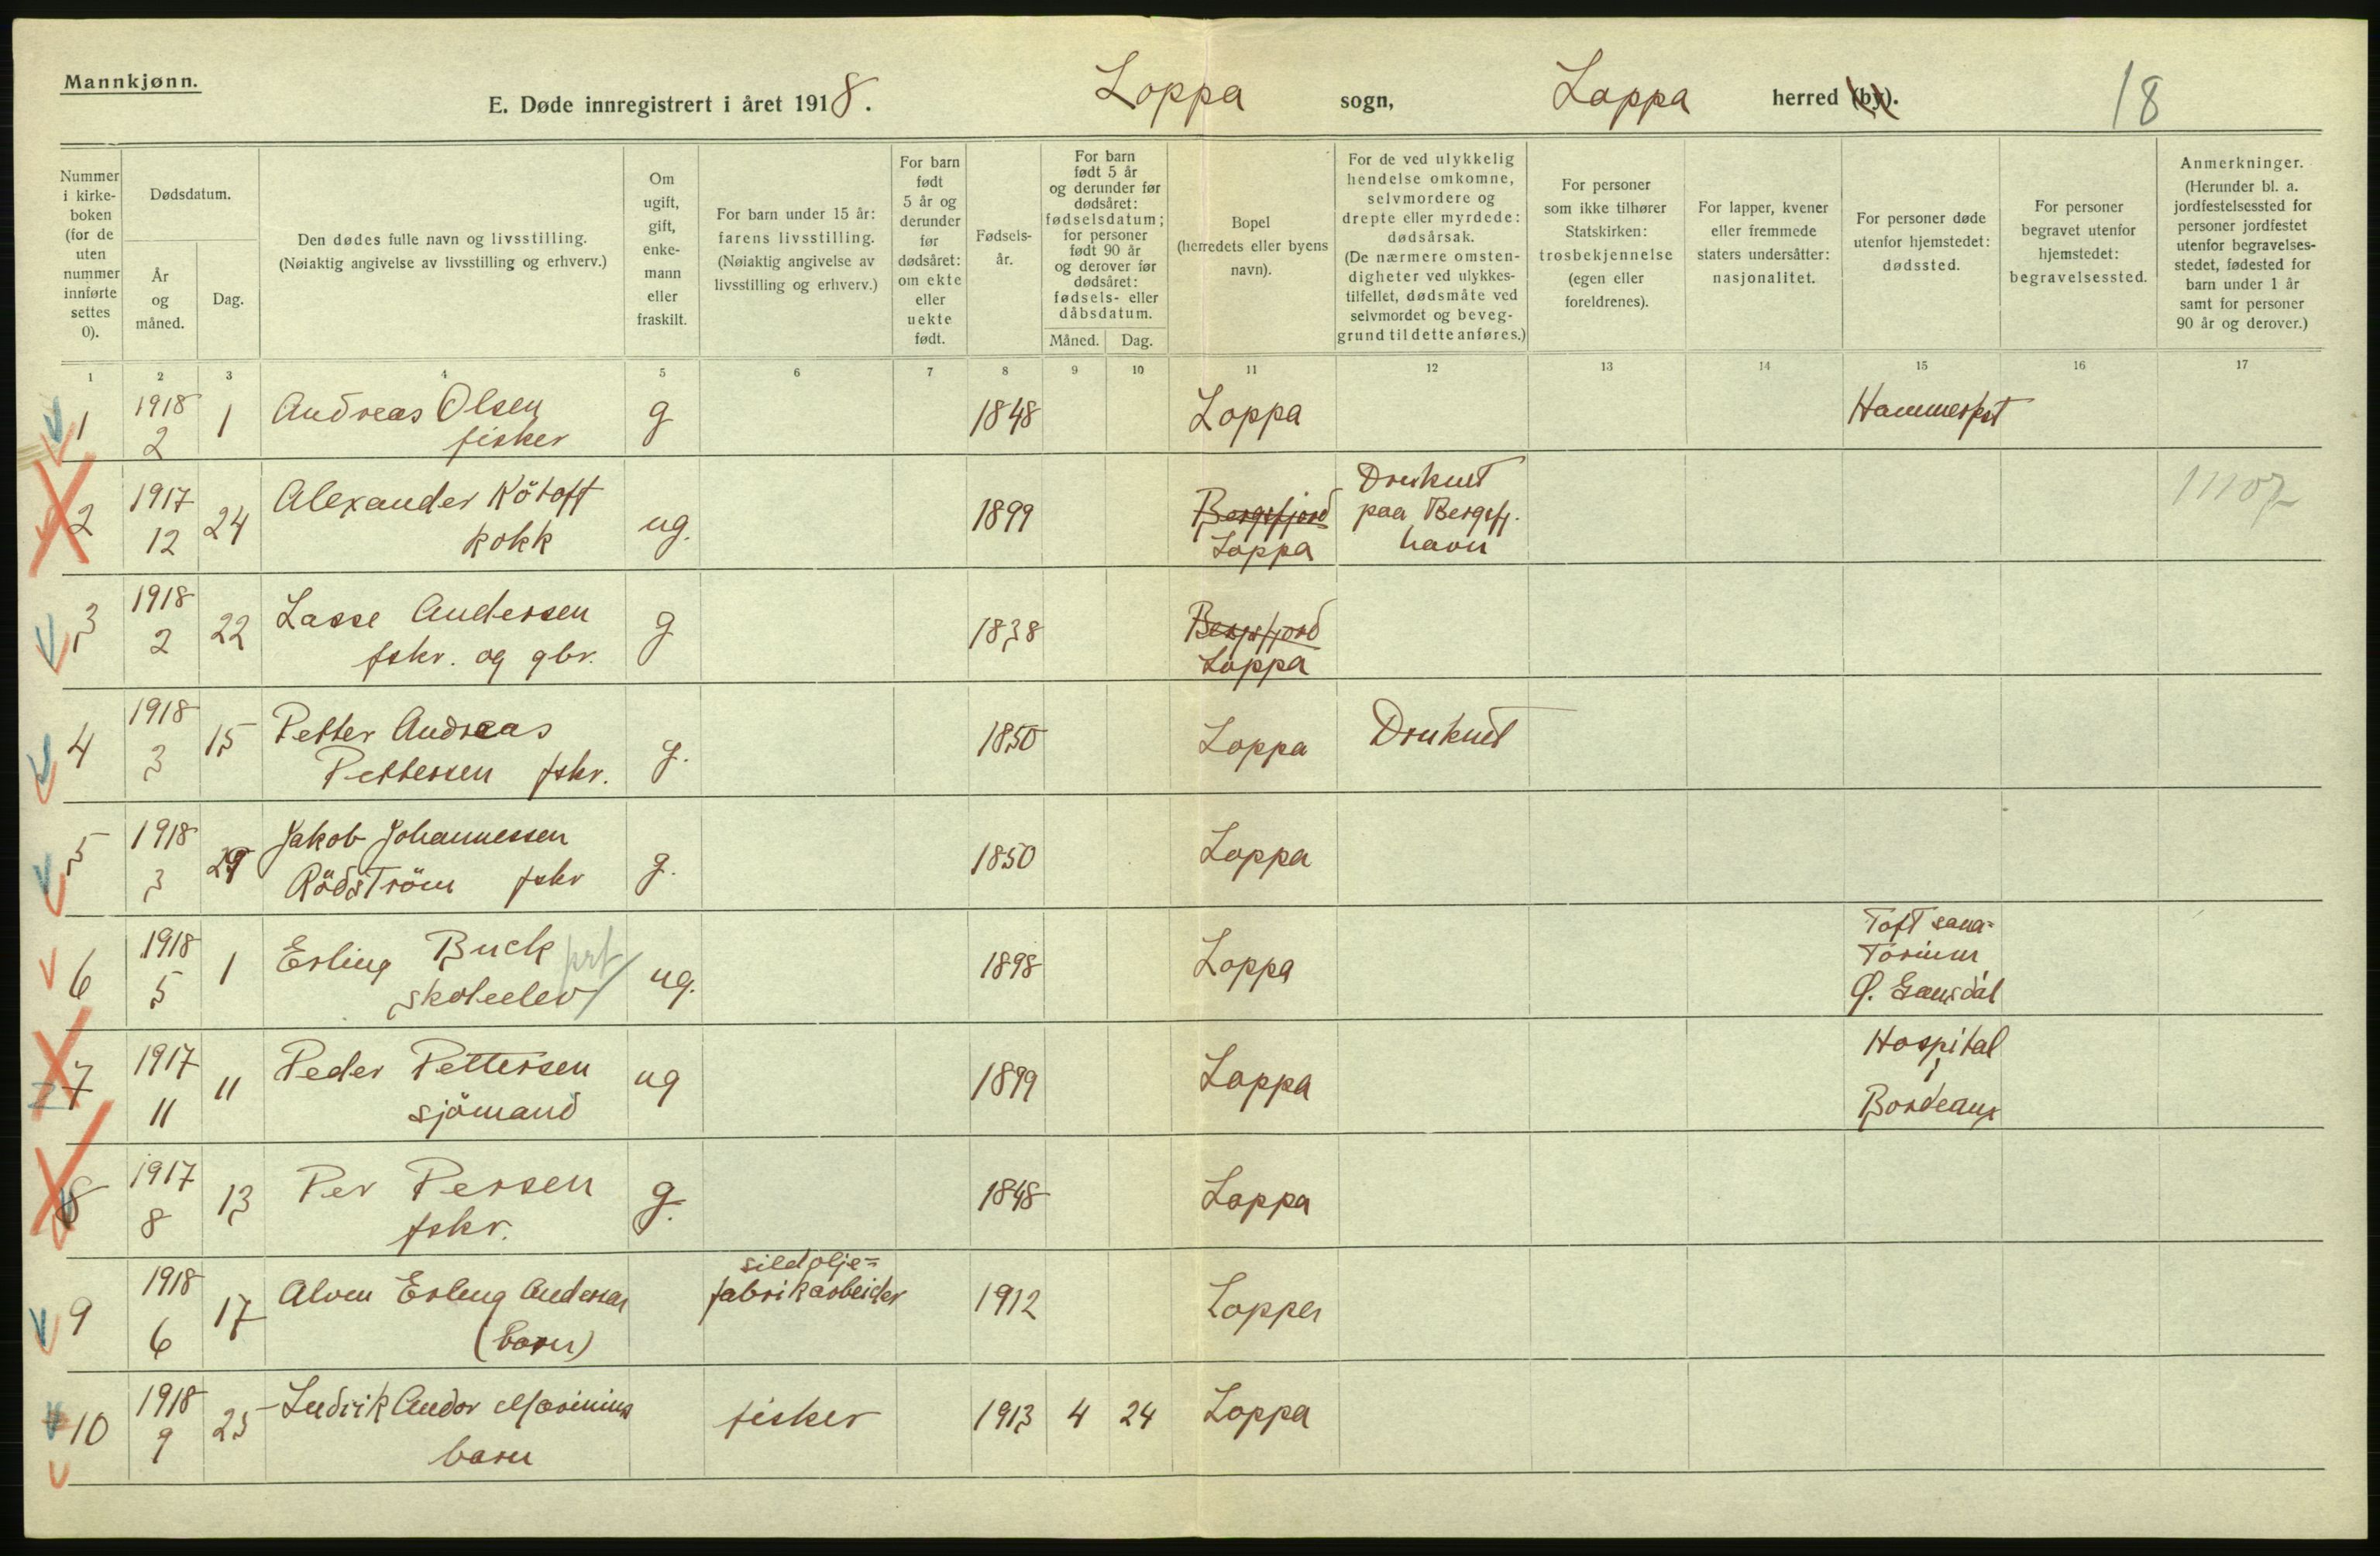 Mannkjønn.
E. Døde innregistrert i året 1918. Loppa sogn, Loppa herred (by). 18
Nummer i kirke-boken (for de uten nummer innførte settes 0).
Dødsdatum.
År og måned.
Dag.
Den dødes fulle navn og livsstilling.
(Nøiaktig angivelse av livsstilling og erhverv.)
Om ugift, gift, enke-mann eller fraskilt.
For barn under 15 år: farens livsstilling. (Nøiaktig angivelse av livsstilling og erhverv.)
For barn født 5 år og derunder før dødsåret: om ekte eller uekte født.
Fødsels-år.
For barn født 5 år og derunder før dødsåret: fødselsdatum; for personer født 90 år og derover før dødsåret: fødsels- eller dåbsdatum.
Måned. Dag.
Bopel (herredets eller byens navn).
For de ved ulykkelig hendelse omkomne, selvmordere og drepte eller myrdede: dødsårsak. (De nærmere omsten-digheter ved ulykkes-tilfellet, dødsmåte ved selvmordet og beveg-grund til dette anføres.)
For personer som ikke tilhører Statskirken: trosbekjennelse (egen eller foreldrenes).
For lapper, kvener eller fremmede staters undersåtter: nasjonalitet.
For personer døde utenfor hjemstedet: dødssted.
For personer begravet utenfor hjemstedet: begravelsessted.
Anmerkninger. (Herunder bl. a. jordfestelsessted for personer jordfestet utenfor begravelses-stedet, fødested for barn under 1 år samt for personer 90 år og derover.)
1 2 3 4 5 6 7 8 9 10 11 12 13 14 15 16 17
1 1918 2 1 Andreas Olsen fisker g 1848 Loppa Hammerfest
2 1917 12 24 Alexander Kötoff kokk ug. 1899 Bergsfjord Loppa Druknet paa Bergsfj. havn 11107
3 1918 2 22 Lasse Andersen fskr. og gbr. g 1838 Bergsfjord Loppa
4 1918 3 15 Petter Andreas Pettersen fskr. g. 1850 Loppa Druknet
5 1918 3 29 Jakob Johannessen Rödström fskr g. 1850 Loppa
6 1918 5 1 Erling Buck skoleelev ug. 1898 Loppa Toft sana= torium Ø. Gausdal
7 1917 11 11 Peder Pettersen sjömand ug 1899 Loppa Hospital i Bordeaux
8 1917 8 13 Per Persen fskr. g. 1848 Loppa
9 1918 6 17 Erling Andersen (barn) sildolje= fabrikarbeider 1912 Loppa
10 1918 9 25 Ludvik Andor Marinius barn fisker 1913 4 24 Loppa